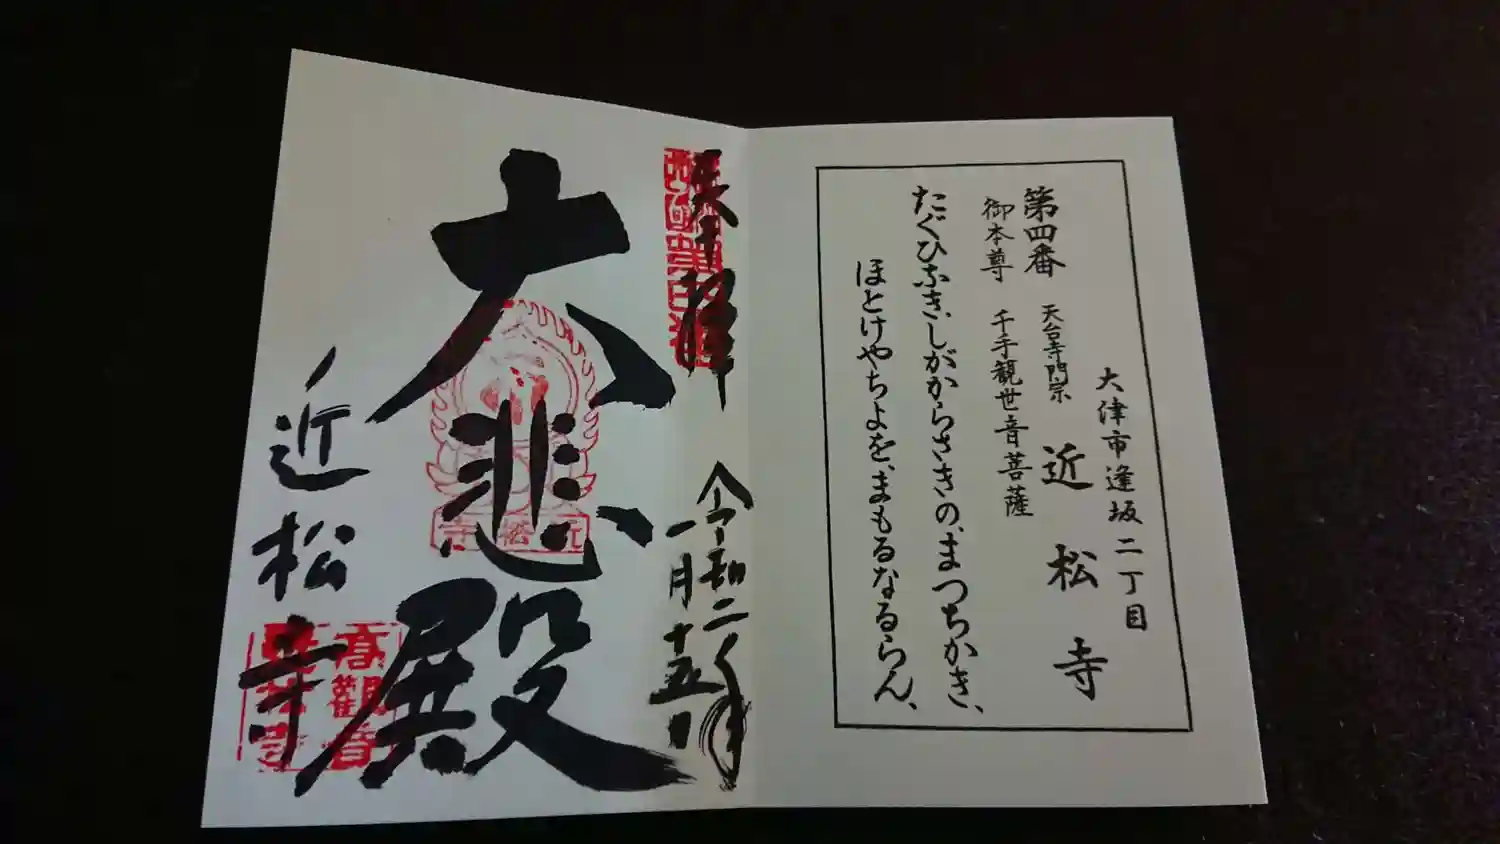 大津市逢坂二丁目
第四番 天台寺門宗 近松寺
御本尊 千手観世音菩薩
たぐひなきしがからさきの、まつちかき、
ほとけやちよを、まもるなるらん、
奉拝 令和二年
一月十五日
大悲殿
近松寺
近松寺
高観音
近松寺